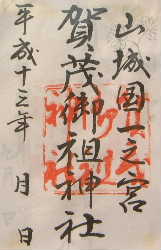 山城国一之宮
賀茂御祖神社
平成十三年 月 日